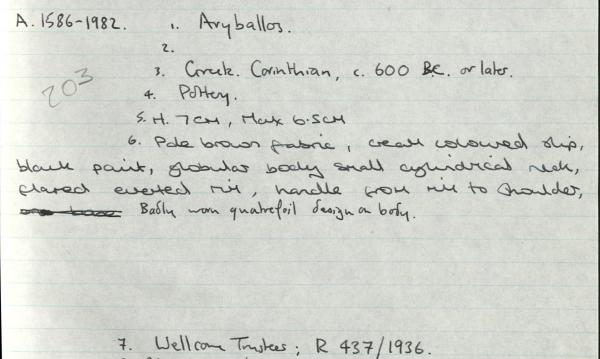 A. 1586-1982. 1. Aryballos.
2.
203
3. Greek. Corinthian, c. 600 BC. or later.
4. Pottery.
5. H. 7cm, Max 6.5cm
6. Pale brown fabric, cream coloured slip,
black paint, globular body small cylindrical neck,
flared everted rim, handle from rim to shoulder,
Badly worn quatrefoil design on body.
7. Wellcome Trustees; R 437/1936.